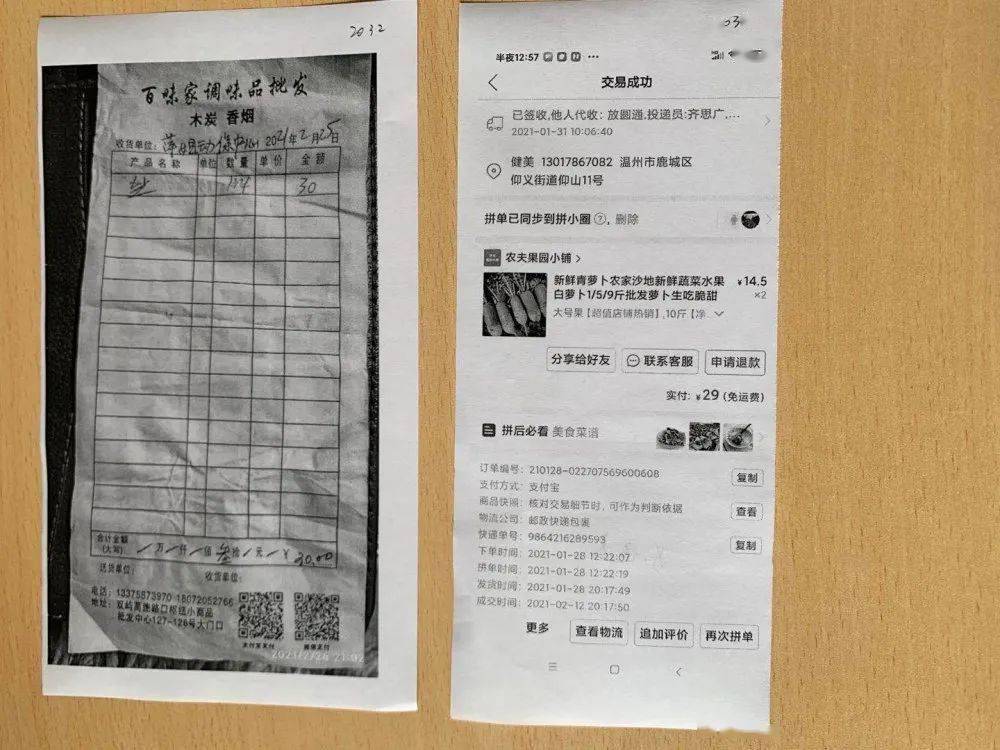 2032
百味家调味品批发
木炭 香烟
收货单位: 2021年2月25日
产品名称 单位 数量 单价 金额
30
合计金额
(大写) 万 仟 佰 叁拾 元 ¥ 30.00
送货单位: 收货单位:
电话: 13375873970 18072052766
地址: 双屿高速路口枢纽小商品
批发中心127-128号大门口
支付宝支付 微信支付
2021/2/26 21:02
03
半夜12:57
交易成功
已签收,他人代收: 放圆通,投递员:齐思广,...
2021-01-31 10:06:40
健美 13017867082 温州市鹿城区
仰义街道仰山11号
拼单已同步到拼小圈?, 删除
农夫果园小铺 >
新鲜青萝卜农家沙地新鲜蔬菜水果 ¥14.5
白萝卜1/5/9斤批发萝卜生吃脆甜 ×2
大号果【超值店铺热销】,10斤【净
分享给好友 联系客服 申请退款
实付: ¥29 (免运费)
拼后必看 美食菜谱
订单编号: 210128-022707569600608 复制
支付方式: 支付宝
商品快照: 核对交易细节时, 可作为判断依据 查看
物流公司: 邮政快递包裹
快递单号: 9864216289593 复制
下单时间: 2021-01-28 12:22:07
拼单时间: 2021-01-28 12:22:19
发货时间: 2021-01-28 20:17:49
成交时间: 2021-02-12 20:17:50
更多 查看物流 追加评价 再次拼单